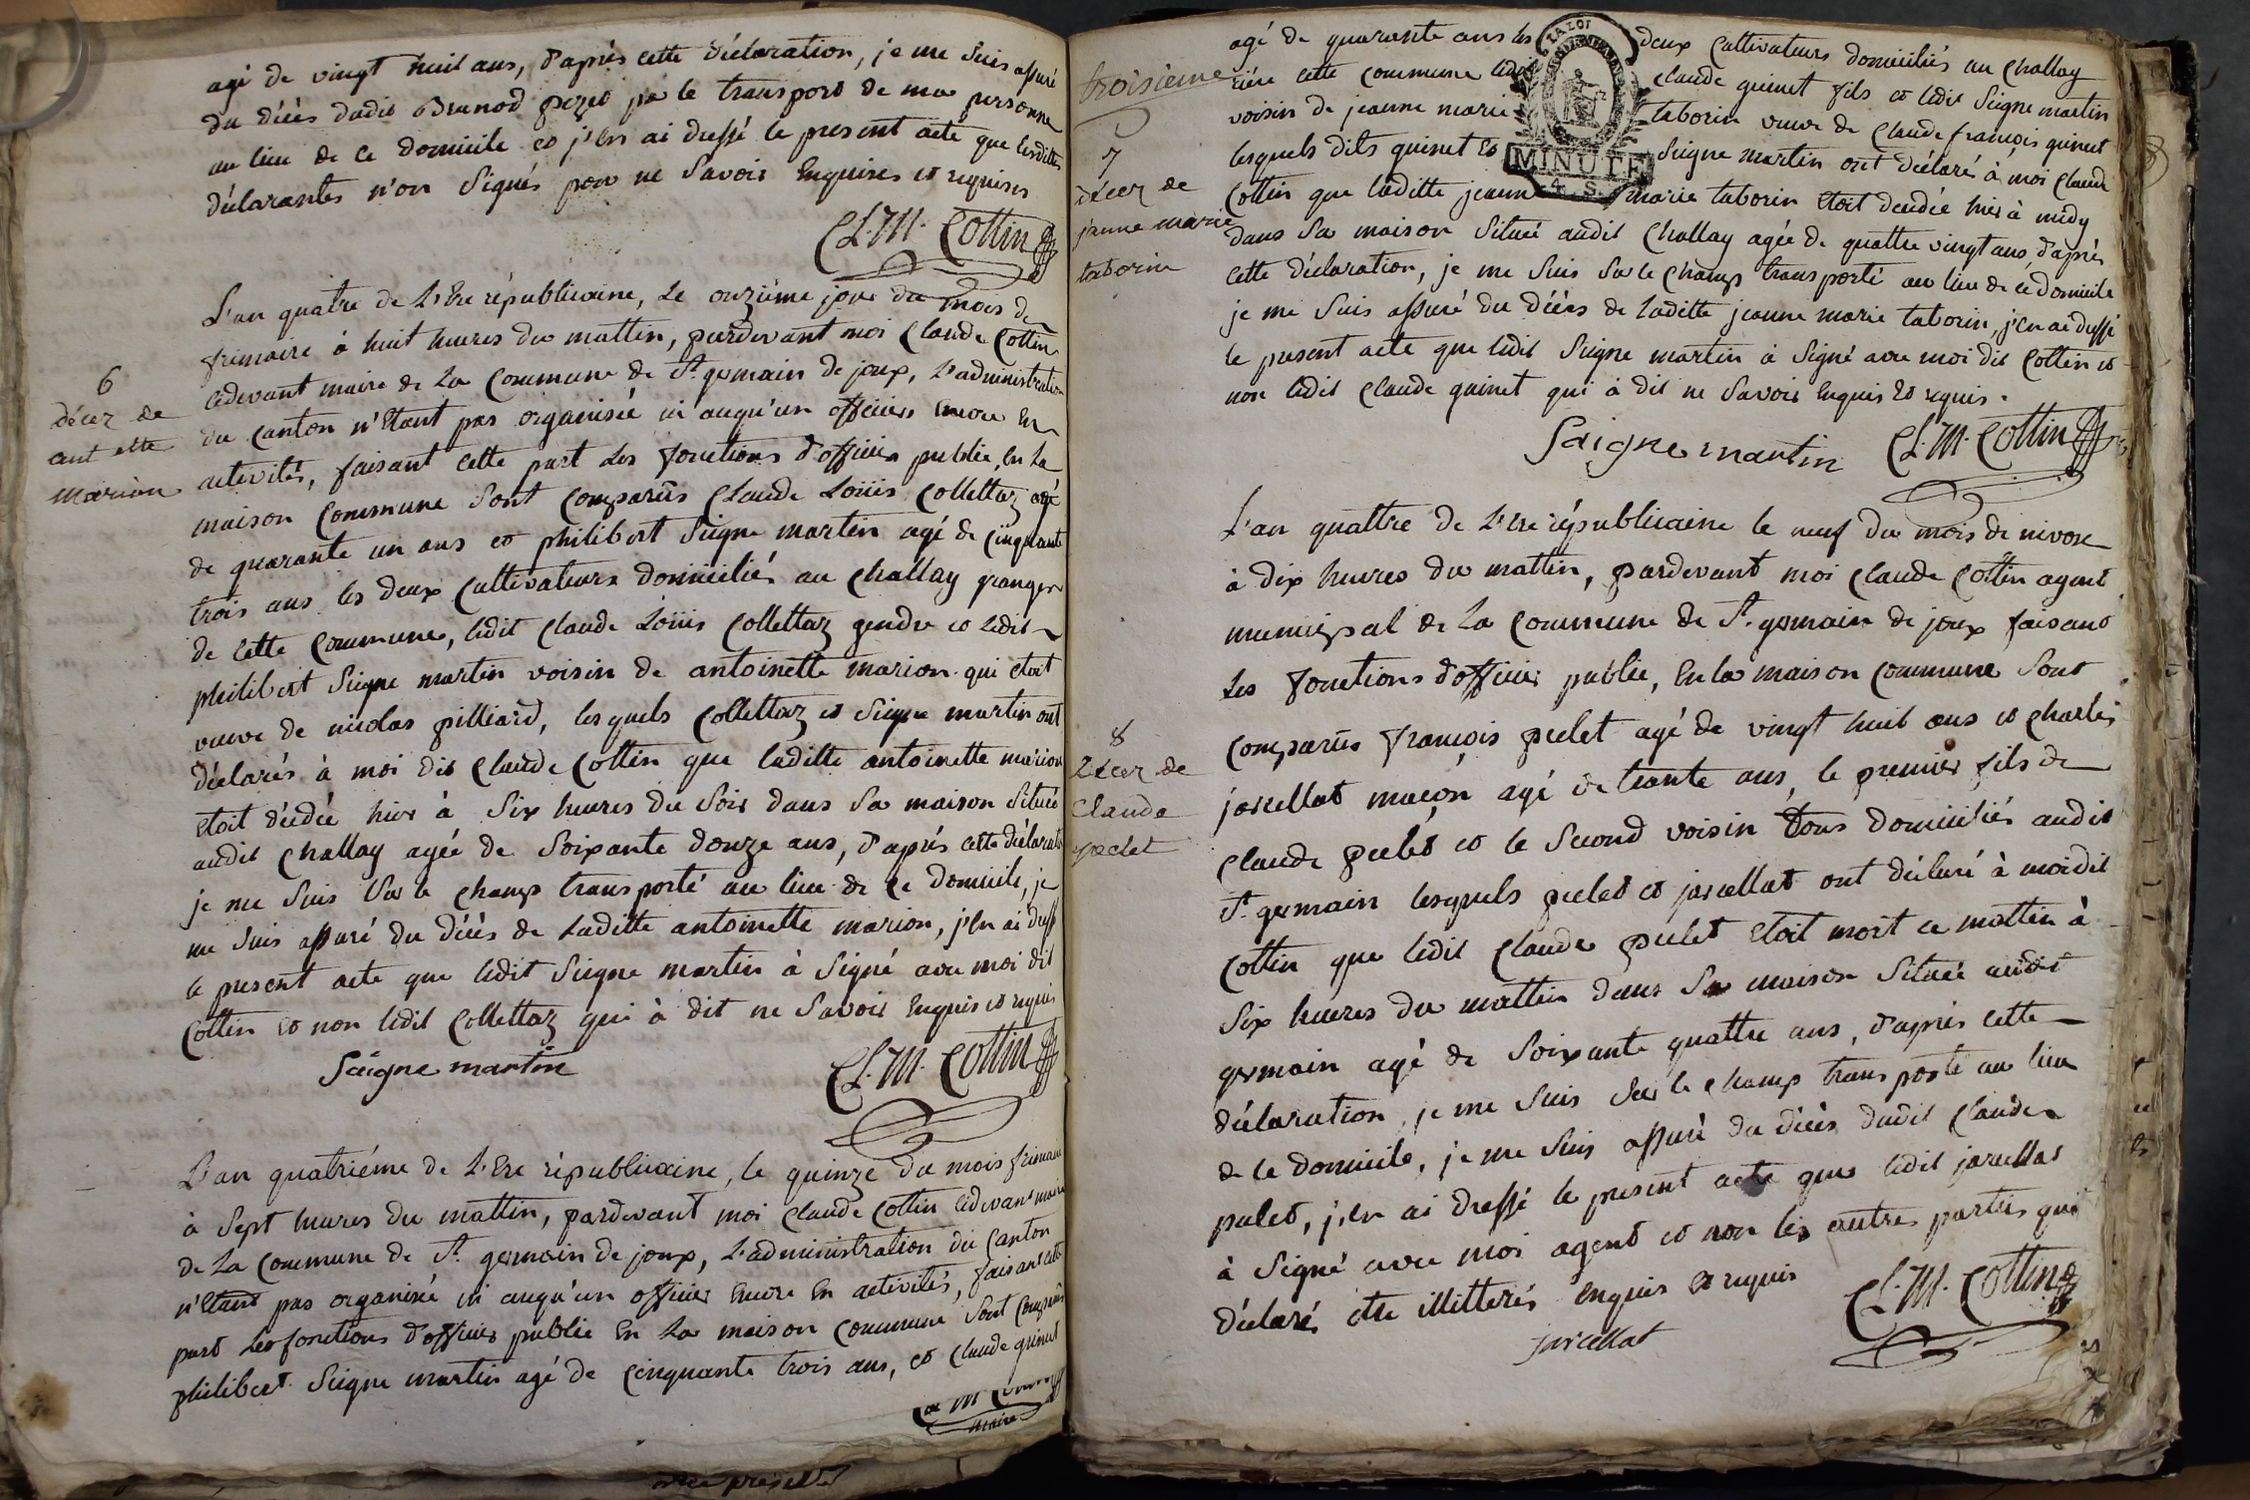 agé de vingt huit ans, d'après cette déclaration, je me suis assuré
du décès dudit Brunod pezet par le transport de ma personne
au lieu de ce domicile et j'en ai dressé le present acte que lesdittes
déclarantes n'on signés pour ne savoir enquises et requises
Cl. M. Cottin
6
décez de
ant ette
marion
L'an quatre de l'Ere républicaine, le onzième jour du mois de
frimaire à huit heures du mattin, pardevant moi Claude Cottin
cidevant maire de la Commune de St germain de joux, l'administration
du Canton n'étant pas organisée ni auqu'un officiers encore en
activités, faisant cette part les fonctions d'officier public, en la
maison Commune sont comparûs Claude Loüis Collettaz agé
de quarante un ans et philibert Seigne martin agé de Cinquante
trois ans les deux Cultivateurs domiciliés au Challay granger
de cette Commune, ledit Claude Loüis Collettaz gendre et ledit
philibert Seigne martin voisin de antoinette marion qui etoit
veuve de nicolas pilliard, lesquels Collettaz et Seigne martin ont
déclarés à moi dit Claude Cottin que laditte antoinette marion
etoit décédée hier à six heures du soir dans sa maison située
audit Challay agée de soixante douze ans, d'après cette déclarate
je me suis sur le champ transporté au lieu de ce domicile, je
me suis assuré du décès de laditte antoinette marion, j'en ai dress
le present acte que ledit Seigne martin à signé avec moi dit
Cottin et non ledit Collettaz qui à dit ne savoir enquis et requis
Saigne martin Cl. M. Cottin
L'an quatriéme de l'Ere républicaine, le quinze du mois frimaire
à sept heures du mattin, pardevant moi Claude Cottin cidevant maire
de la Commune de St. germain de joux, l'administration du Canton
n'étant pas organisé ni auqu'un officier encore en activités, faisant cette
part les fonctions d'officier public en la maison Commune sont comparûs
philibert Seigne martin agé de Cinquante trois ans, et Claude guinet
maire
troisieme
7
décez de
jeanne marie
taborin
agé de quarante ans les deux Cultivateurs domiciliés au Challay
rière cette commune ledit Claude guinet fils et ledit Seigne martin
voisin de jeanne marie taborin veuve de Claude françois guinet
lesquels dits guinet et Seigne martin ont déclaré à moi Claude
Cottin que laditte jeanne marie taborin etoit decedée hier à midy
dans sa maison située audit Challay agée de quattre vingt ans, d'après
cette déclaration, je me suis sur le champ transporté au lieu de ce domicile
je me suis assuré du décès de laditte jeanne marie taborin, j'en ai dressé
le present acte que ledit Seigne martin à signé avec moi dit Cottin et
non ledit Claude guinet qui à dit ne savoir enquis et requis.
LA LOI
MINUTE
4. S.
Saigne martin Cl. M. Cottin
8
décez de
Claude
peclet
L'an quattre de l'Ere républicaine le neuf du mois de nivose
à dix heures du mattin, pardevant moi Claude Cottin agent
municipal de la Commune de St. germain de joux faisant
les fonctions d'officier public, en la maison Commune sont
comparûs françois peclet agé de vingt huit ans et Charles
jarcellat maçon agé de trante ans, le premier fils de
Claude peclet et le second voisin tous domiciliés audit
St. germain lesquels peclet et jarcellat ont déclaré à moi dit
Cottin que ledit Claude peclet etoit mort ce mattin à
six heures du mattin dans sa maison située audit
germain agé de soixante quattre ans, d'après cette
déclaration, je me suis sur le champ transporté au lieu
de ce domicile, je me suis assuré du décès dudit Claude
peclet, j'en ai dressé le present acte que ledit jarcellat
à signé avec moi agent et non les autres parties qui
déclaré être illitterés enquis et requis
jarcellat Cl. M. Cottin